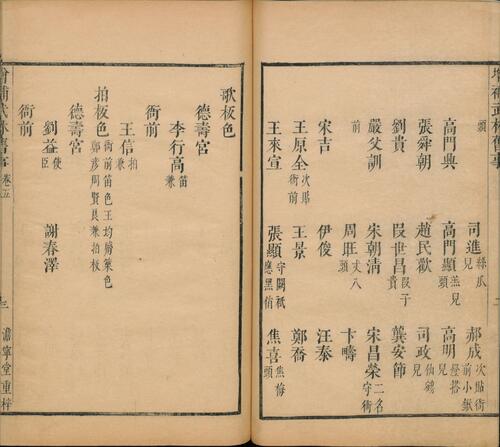 增補武林舊事
頭 司進絲瓜兒 郝成次貼衙前小鍁
高門典 高門顯羔兒頭 高明燈搭兒
張舜朝 趙民歡 司政仙鶴兒
劉貴 段世昌段子貴 龔安節
嚴父訓 宋朝清 宋昌榮二名守衙
前 周旺丈八頭 卞疇
宋吉 伊俊 汪泰
王原全次貼衙前 王景 鄭喬
王來宣 張顯守闕祗應黑俏 焦喜焦梅頭
歌板色
德壽宮
李行高笛兼
衙前
王信拍兼
拍板色衙前笛色王均觱篥色鄭彥周賢良兼拍板
德壽宮
劉益使臣 謝春澤
衙前
增補武林舊事 卷五 三 澹寧堂重梓